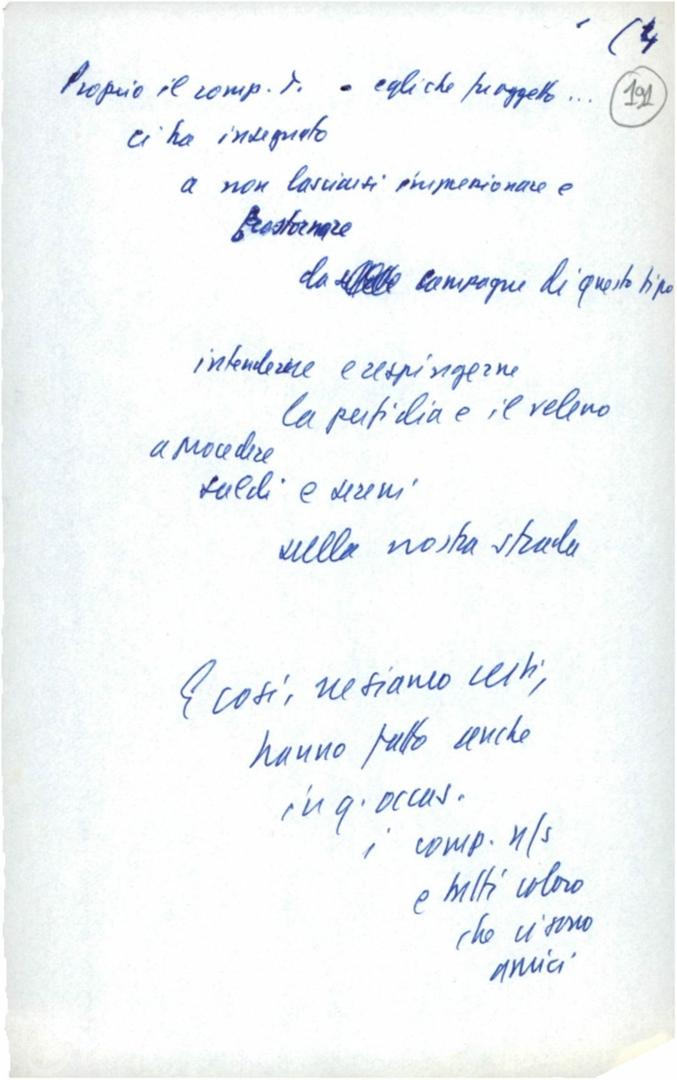 (4
191
Proprio il comp. T. - egli che fu oggetto ...
ci ha insegnato
a non lasciarsi impressionare e
frastornare
da campagne di questo tipo
intenderne e respingerne
la perfidia e il veleno
a procedere
saldi e sereni
sulla nostra strada
E così, ne siamo certi,
hanno fatto anche
in q. occas.
i comp. n/s
e tutti coloro
che ci sono
amici